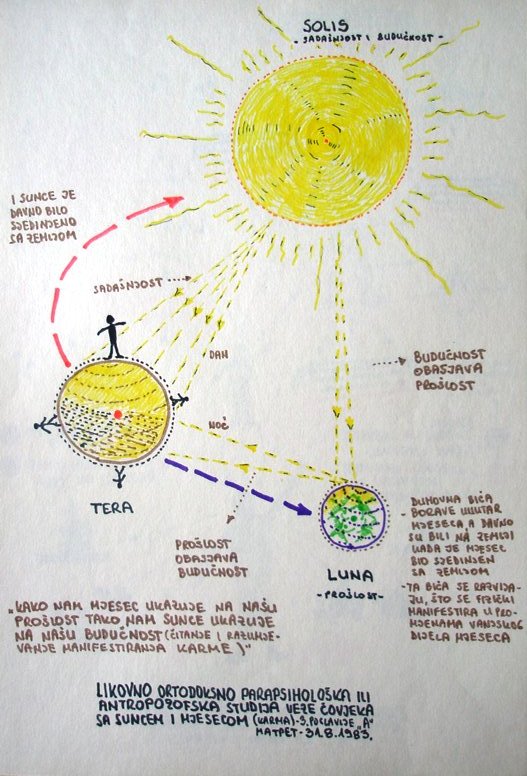 SOLIS
- SADAŠNJOST I BUDUĆNOST -
I SUNCE JE
DAVNO BILO
SJEDINJENO
SA ZEMLJOM
SADAŠNJOST
DAN
BUDUĆNOST
OBASJAVA
PROŠLOST
NOĆ
TERA
PROŠLOST
OBASJAVA
BUDUĆNOST
LUNA
- PROŠLOST -
DUHOVNA BIĆA
- BORAVE UNUTAR
MJESECA, A DAVNO
SU BILI NA ZEMLJI
KADA JE MJESEC
BIO SJEDINJEN
SA ZEMLJOM
- TA BIĆA SE RAZVIJA-
JU, ŠTO SE FIZIČKI
MANIFESTIRA U PRO-
MJENAMA VANJSKOG
DIJELA MJESECA
„KAKO NAM MJESEC UKAZUJE NA NAŠU
PROŠLOST TAKO NAM SUNCE UKAZUJE
NA NAŠU BUDUĆNOST (ČITANJE I RAZUMJE-
VANJE MANIFESTIRANJA KARME)"
LIKOVNO ORTODOKSNO PARAPSIHOLOŠKA ILI
ANTROPOZOFSKA STUDIJA VEZE ČOVJEKA
SA SUNCEM I MJESECOM (KARMA) - 3. POGLAVLJE „A"
MATPET - 31.8.1983.